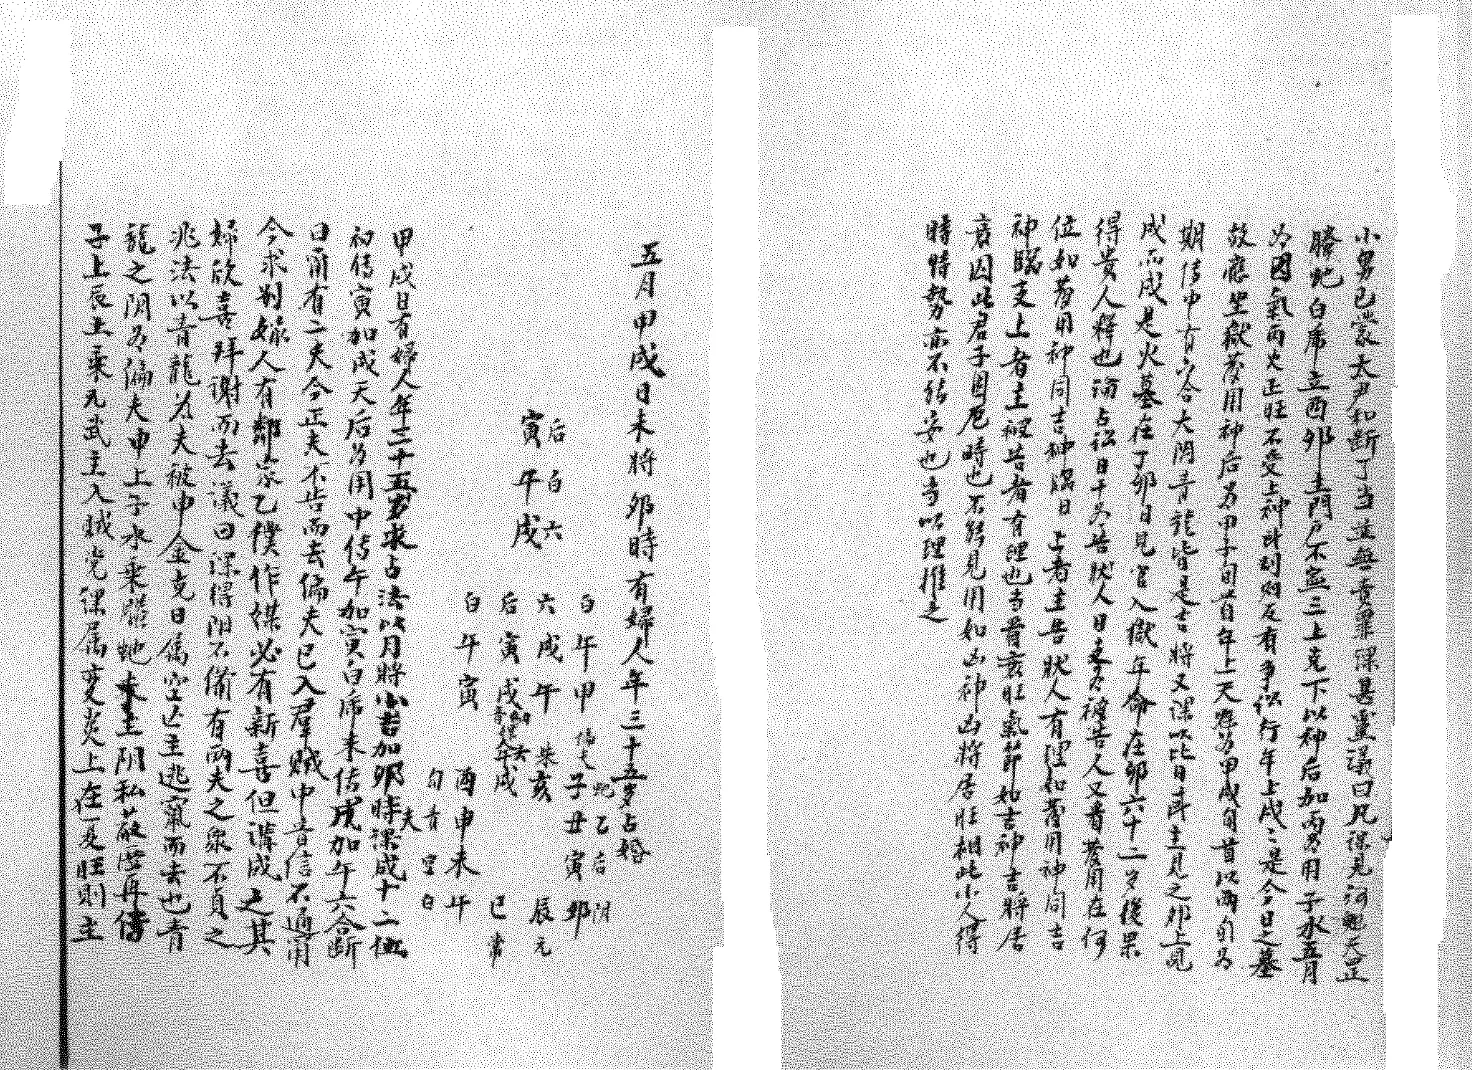 小舅已蒙大尹和斷了当並無責罪課甚靈議曰凡課見河魁天罡
螣蛇白虎立酉卯主門戶不寧三上克下以神后加丙為用子水五月
為囚氣丙火正旺不受上神时刻则反有争讼行年上戌二是今日之墓
故應坐獄發用神后為甲子旬首年上天罡為甲戌旬首以兩旬为
期传中有六合大陰青龍皆是吉將又課以比日时主見之卯上見
戌而戌是火墓在丁卯日見官入獄年命在卯六十二岁後果
得貴人釋也河占讼日干为告狀人日支为被告人又看發用在何
位如發用神同吉神臨日上者主告狀人有理如發用神同吉
神臨支上者主被告者有理也当看衰旺氣節如吉神吉將居
衰囚此君子困厄時也不能見用如凶神凶將居旺相此小人得
時時勢亦不能安也当以理推之
五月甲戌日未將卯時有婦人年三十五岁占婚
后 白 六
寅 午 戌
白 午 甲
六 戌 午
后 寅 戌
白 午 寅
蛇 乙 吉 阴
子 丑 寅 卯
朱 亥 辰 元
戌 巳 常
酉 申 未 午
勾 青 空 白
甲戌日有婦人年三十五岁求占法以月將小吉加卯時課成十二位
初传寅加戌天后为用中传午加寅白虎末传戌加午六合断
曰甯有二夫今正夫不告而去偏夫已入群贼中音信不通甯
今求别嫁人有鄰家乙僕作媒必有新喜但講成之其
婦欣喜拜謝而去議曰課得阴不備有兩夫之象不貞之
兆法以青龍为夫被申金克日属空亡主逃竄而去也青
龍之阴为偏夫申上子水乘螣蛇夫主阴私蔽匿再傳
子上辰上乘元武主入贼党課属炎上在夏旺則主